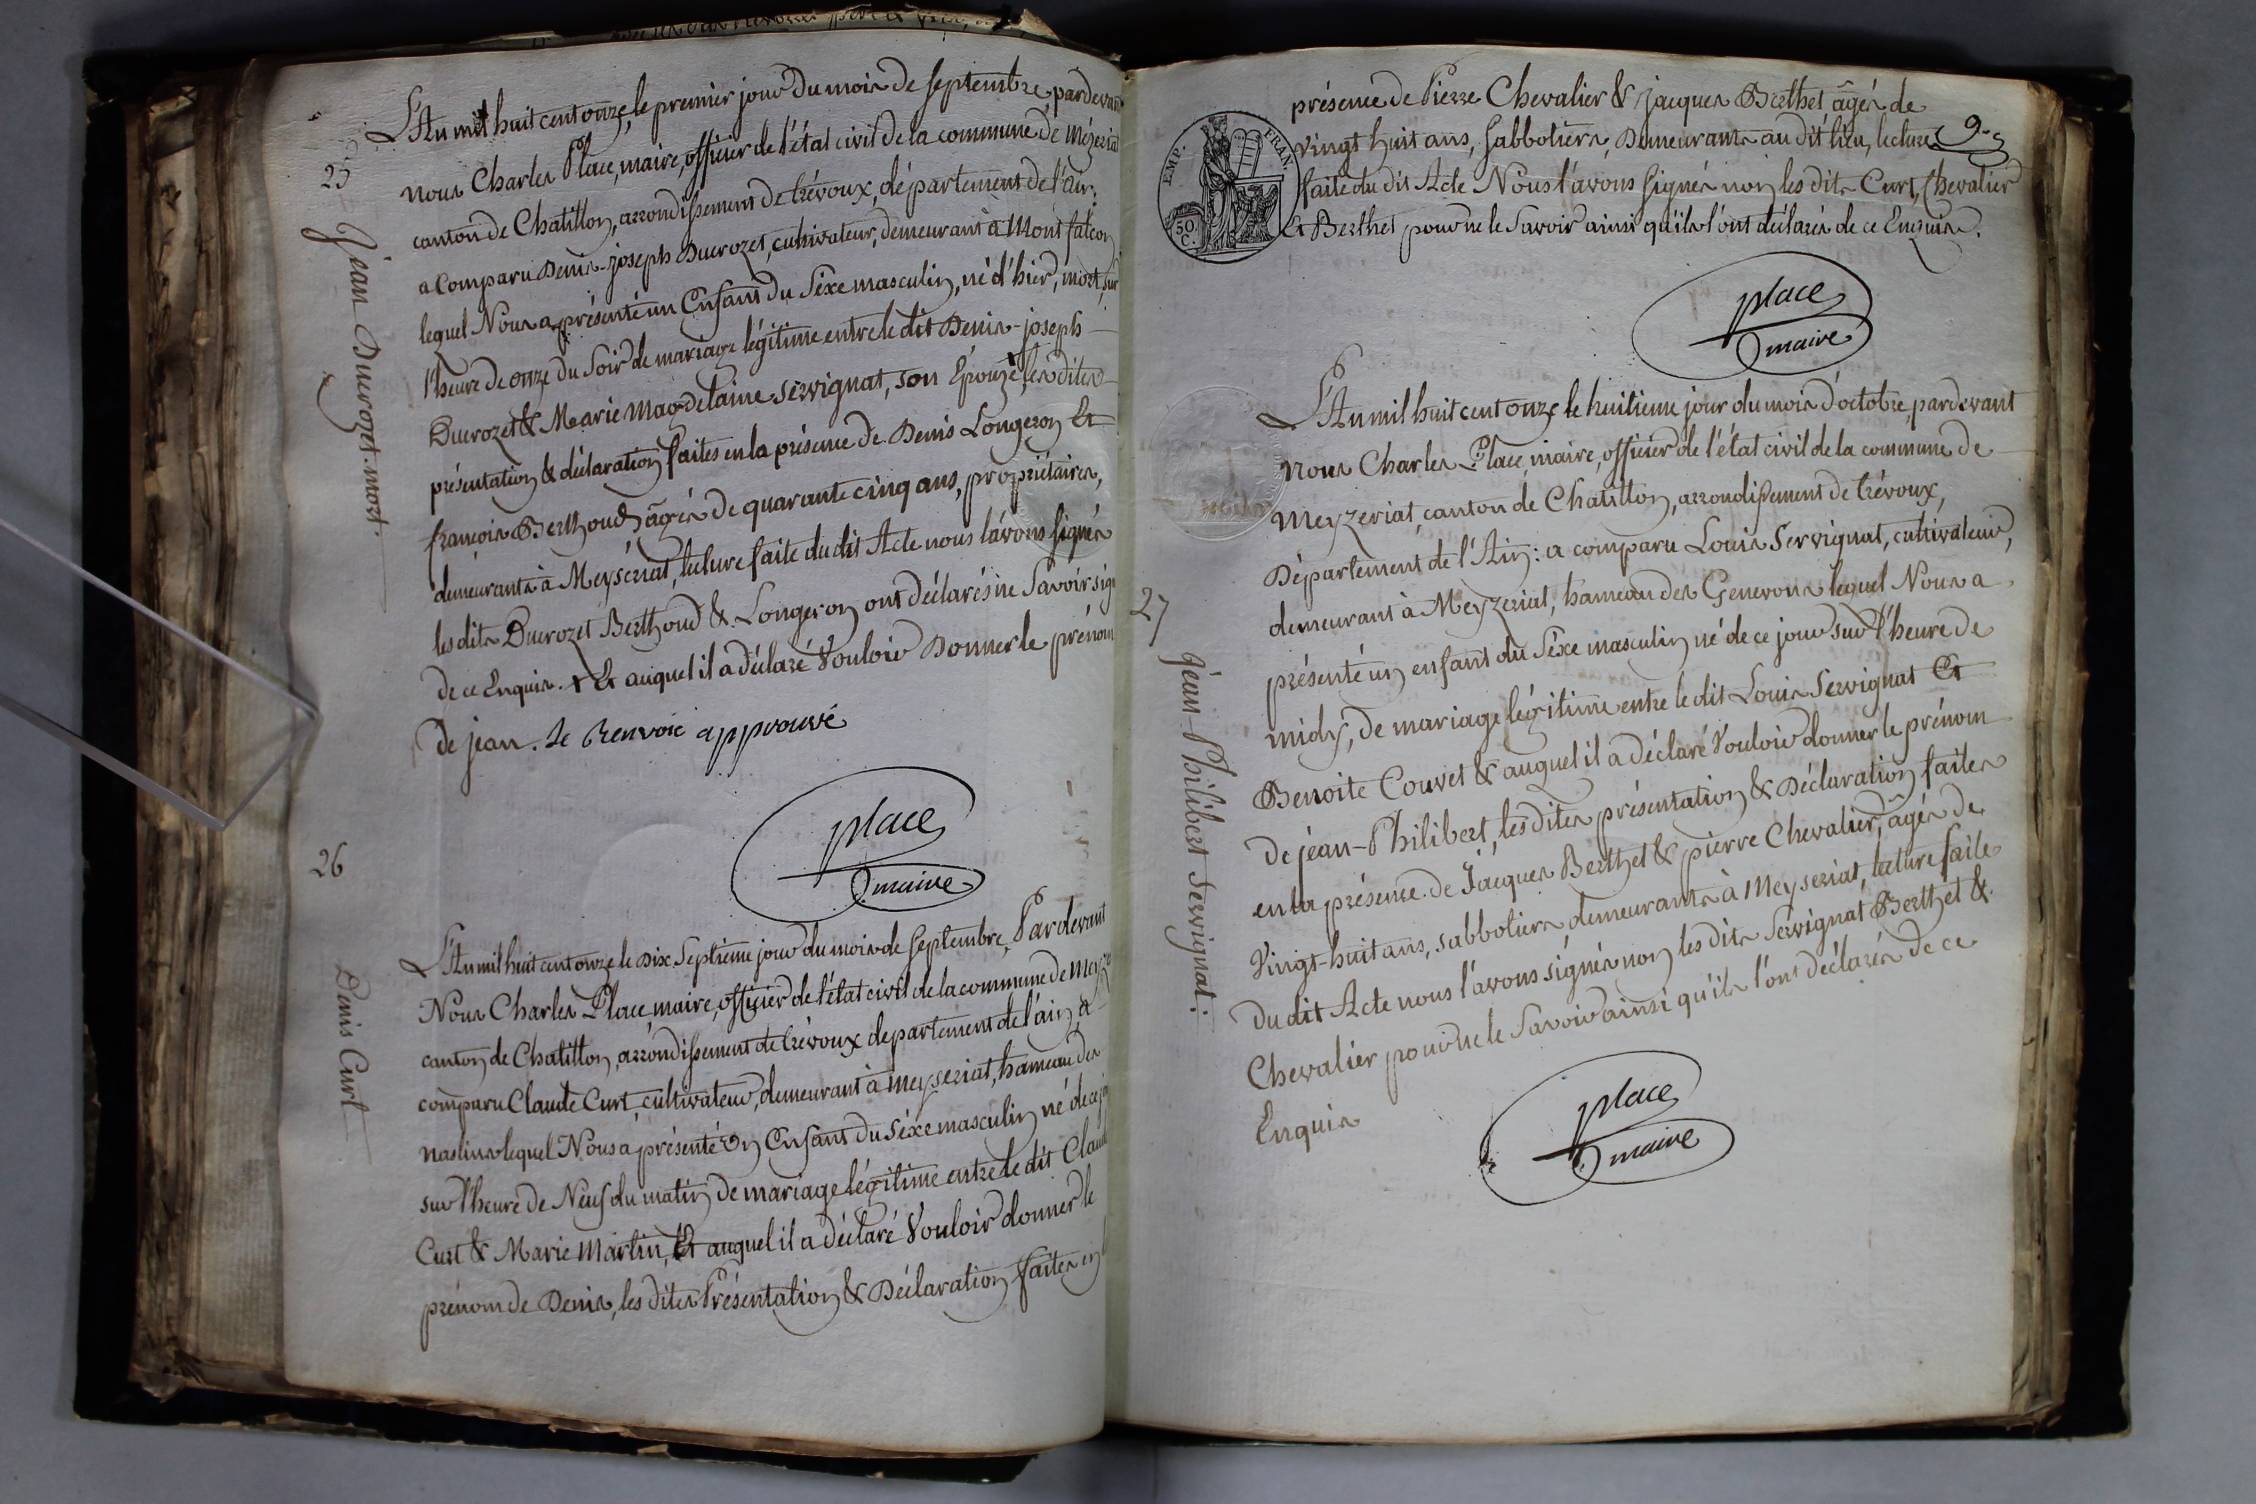 25
Jean Ducrozet. mort.
L'An mil huit cent onze, le premier jour du mois de septembre, pardevant
nous Charles Place, maire, officier de l'état civil de la commune de Mézeriat
canton de Chatillon, arrondissement de trévoux, département de l'ain;
a comparu Denis-joseph Ducrozet, cultivateur, demeurant à Montfalcon
lequel Nous a présenté un Enfant du sexe masculin, né d'hier, mort, sur
l'heure de onze du soir de mariage légitime entre le dit Denis-joseph
Ducrozet & Marie Magdelaine Servignat, son Epouze, les dites
présentation & déclaration faites en la présence de Denis Longeron Et
françois Berthoud, âgés de quarante cinq ans, propriétaires,
demeurants à Meyseriat, lecture faite du dit Acte nous l'avons signés
les dits Ducrozet Berthoud & Longeron ont déclarés ne savoir sig
de ce Enquis. + Et auquel il a déclaré vouloir Donner le prénom
de jean. le Renvoie approuvé
place
maire
26
Denis Curt
L'An mil huit cent onze le Dix Septieme jour du mois de septembre, Pardevant
Nous Charles Place, maire, officier de l'état civil de la commune de Meyze
canton de Chatillon, arrondissement de trévoux departement de l'ain, a
comparu Claude Curt, cultivateur, demeurant à Meyseriat, hameau des
naslins lequel Nous a présenté Un Enfant du sexe masculin né de ce jo
sur l'heure de Neuf du matin de mariage légitime entre le dit Claude
Curt & Marie Martin, Et auquel il a déclaré Vouloir donner le
prénom de Denis, les dites Présentation & Déclaration faites en
9.
EMP. FRAN.
50 C.
présence de Pierre Chevalier & Jacques Berthet âgés de
vingt huit ans, Sabbotiers, Demeurants au dit lieu, lecture
faite du dit Acte Nous l'avons signés non les dits Curt, Chevalier
Et Berthet pour ne le Savoir ainsi qu'ils l'ont déclarés de ce Enquis.
place
maire
27
Jean-Philibert Servignat:
L'An mil huit cent onze le huitieme jour du mois d'octobre, pardevant
nous Charles Place, maire, officier de l'état civil de la commune de
Meyzeriat, canton de Chatillon, arrondissement de trévoux,
Département de l'Ain: a comparu Louis Servignat, cultivateur,
demeurant à Meyzeriat, hameau des Genevons lequel Nous a
présenté un enfant du sexe masculin né de ce jour sur l'heure de
midy, de mariage légitime entre le dit Louis Servignat Et
Benoite Couvet & auquel il a déclaré vouloir donner le prénom
de jean-Philibert, les dites présentation & Déclaration faites
en la présence de Jacques Berthet & pierre Chevalier, âgés de
Vingt-huit ans, sabbotiers demeurants à Meyseriat, lecture faite
Du dit Acte nous l'avons signés non les dits Servignat Berthet &
Chevalier pour ne le savoir ainsi qu'ils l'ont déclarés de ce
Enquis
place
maire